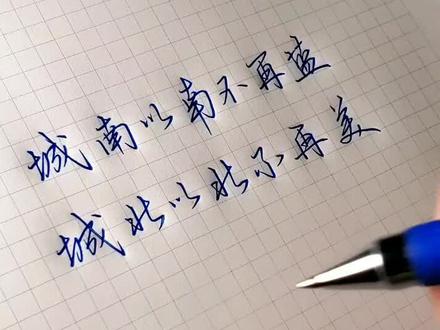 城南以南不再蓝
城北以北不再美